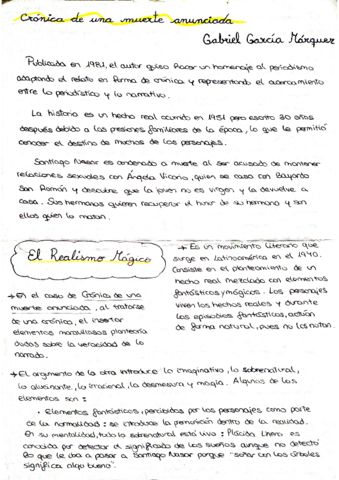 Crónica de una muerte anunciada
Gabriel García Márquez
Publicada en 1981, el autor quiso hacer un homenaje al periodismo
adaptando el relato en forma de crónica y representando el acercamiento
entre lo periodístico y lo narrativo.
La historia es un hecho real ocurrido en 1951 pero escrito 30 años
después debido a las presiones familiares de la época, lo que le permitió
conocer el destino de muchos de los personajes.
Santiago Nasar es condenado a muerte al ser acusado de mantener
relaciones sexuales con Ángela Vicario, quien se casa con Bayardo
San Román y descubre que la joven no es virgen y la devuelve a
casa. Sus hermanos quieren recuperar el honor de su hermana y son
ellos quien lo matan.
El Realismo Mágico
→ Es un movimiento literario que
surge en Latinoamérica en el 1940.
Consiste en el planteamiento de un
hecho real mezclado con elementos
fantásticos y mágicos. Los personajes
viven los hechos reales y durante
los episodios fantásticos, actúan
de forma natural, pues no los notan.
→ En el caso de Crónica de una
muerte anunciada, al tratarse
de una crónica, el insertar
elementos maravillosos plantearía
dudas sobre la veracidad de lo
narrado.
→ El argumento de la obra introduce lo imaginativo, lo sobrenatural,
lo alucinante, lo irracional, la desmesura y magia. Algunos de los
elementos son:
• Elementos fantásticos, percibidos por los personajes como parte
de la normalidad: se introduce la premonición dentro de la realidad.
En su mentalidad, todo lo sobrenatural está vivo: Plácida Linero es
conocida por detectar el significado de los sueños aunque no detectó
lo que le iba a pasar a Santiago Nasar porque "soñar con los árboles
significa algo bueno".